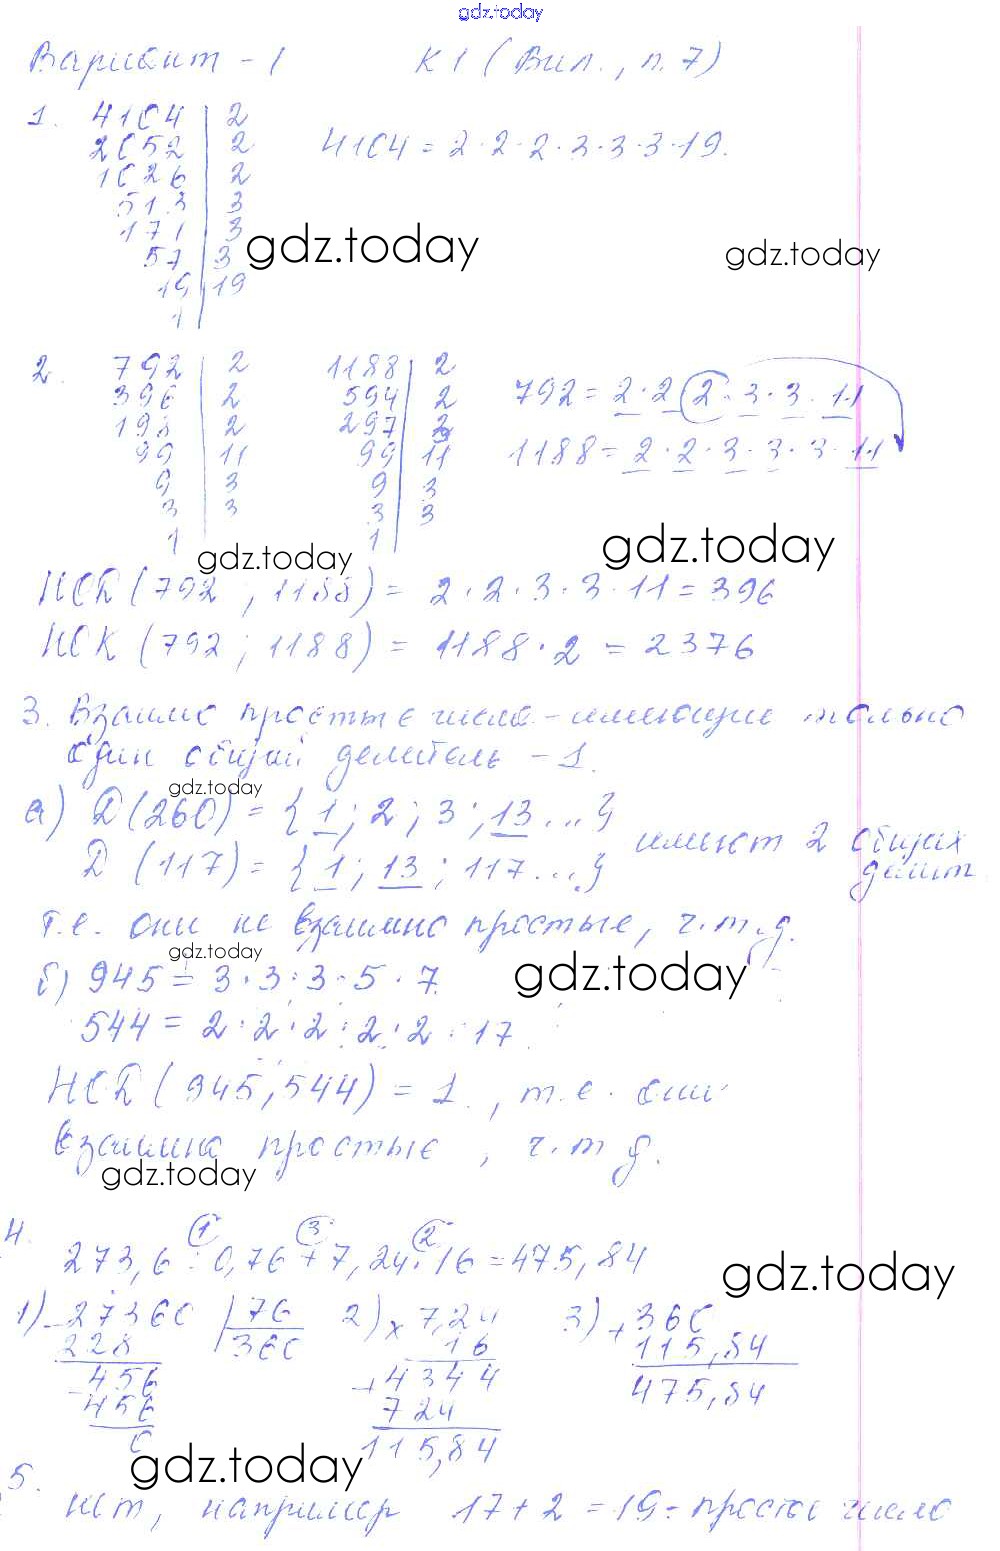 gdz.today
Вариант - 1 К 1 (Вил., п. 7)
1. 4104 | 2
2052 | 2 4104 = 2 · 2 · 2 · 3 · 3 · 3 · 19.
1026 | 2
513 | 3
171 | 3
gdz.today gdz.today
57 | 3
19 | 19
1
2. 792 | 2 1188 | 2
396 | 2 594 | 2 792 = 2 · 2 · 2 · 3 · 3 · 11
198 | 2 297 | 3
99 | 11 99 | 11 1188 = 2 · 2 · 3 · 3 · 3 · 11
9 | 3 9 | 3
3 | 3 3 | 3
1 1
gdz.today gdz.today
НОД (792 ; 1188) = 2 · 2 · 3 · 3 · 11 = 396
НОК (792 ; 1188) = 1188 · 2 = 2376
3. Взаимо простые числа - имеющие только
один общий делитель - 1.
gdz.today
а) Д (260) = {1 ; 2 ; 3 ; 13 ...} имеют 2 общих
Д (117) = {1 ; 13 ; 117 ...} делит.
т.е. они не взаимно простые, ч.т.д.
gdz.today gdz.today
б) 945 = 3 · 3 · 3 · 5 · 7.
544 = 2 · 2 · 2 · 2 · 2 · 17.
НОД (945, 544) = 1, т.е. они
взаимно простые, ч.т.д.
gdz.today
4. 1 3 2
273,6 : 0,76 + 7,24 · 16 = 475,84
gdz.today
1) - 27360 | 76 2) x 7,24 3) + 360
228 | 360 16 115,84
- 456 + 4344 475,84
456 724
0 115,84
gdz.today
5.
Нет, например 17 + 2 = 19 - простое число